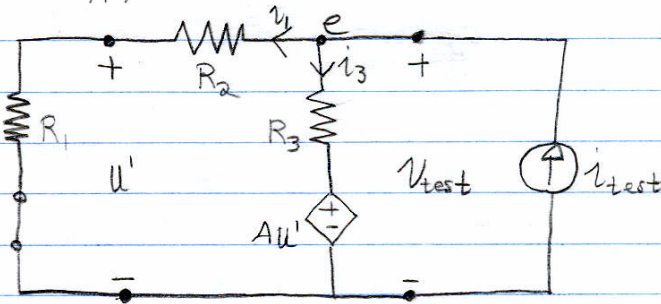 i₁ e
+ R₂ i₃ +
R₁ R₃
u' Vtest itest
+
Au' -
- -